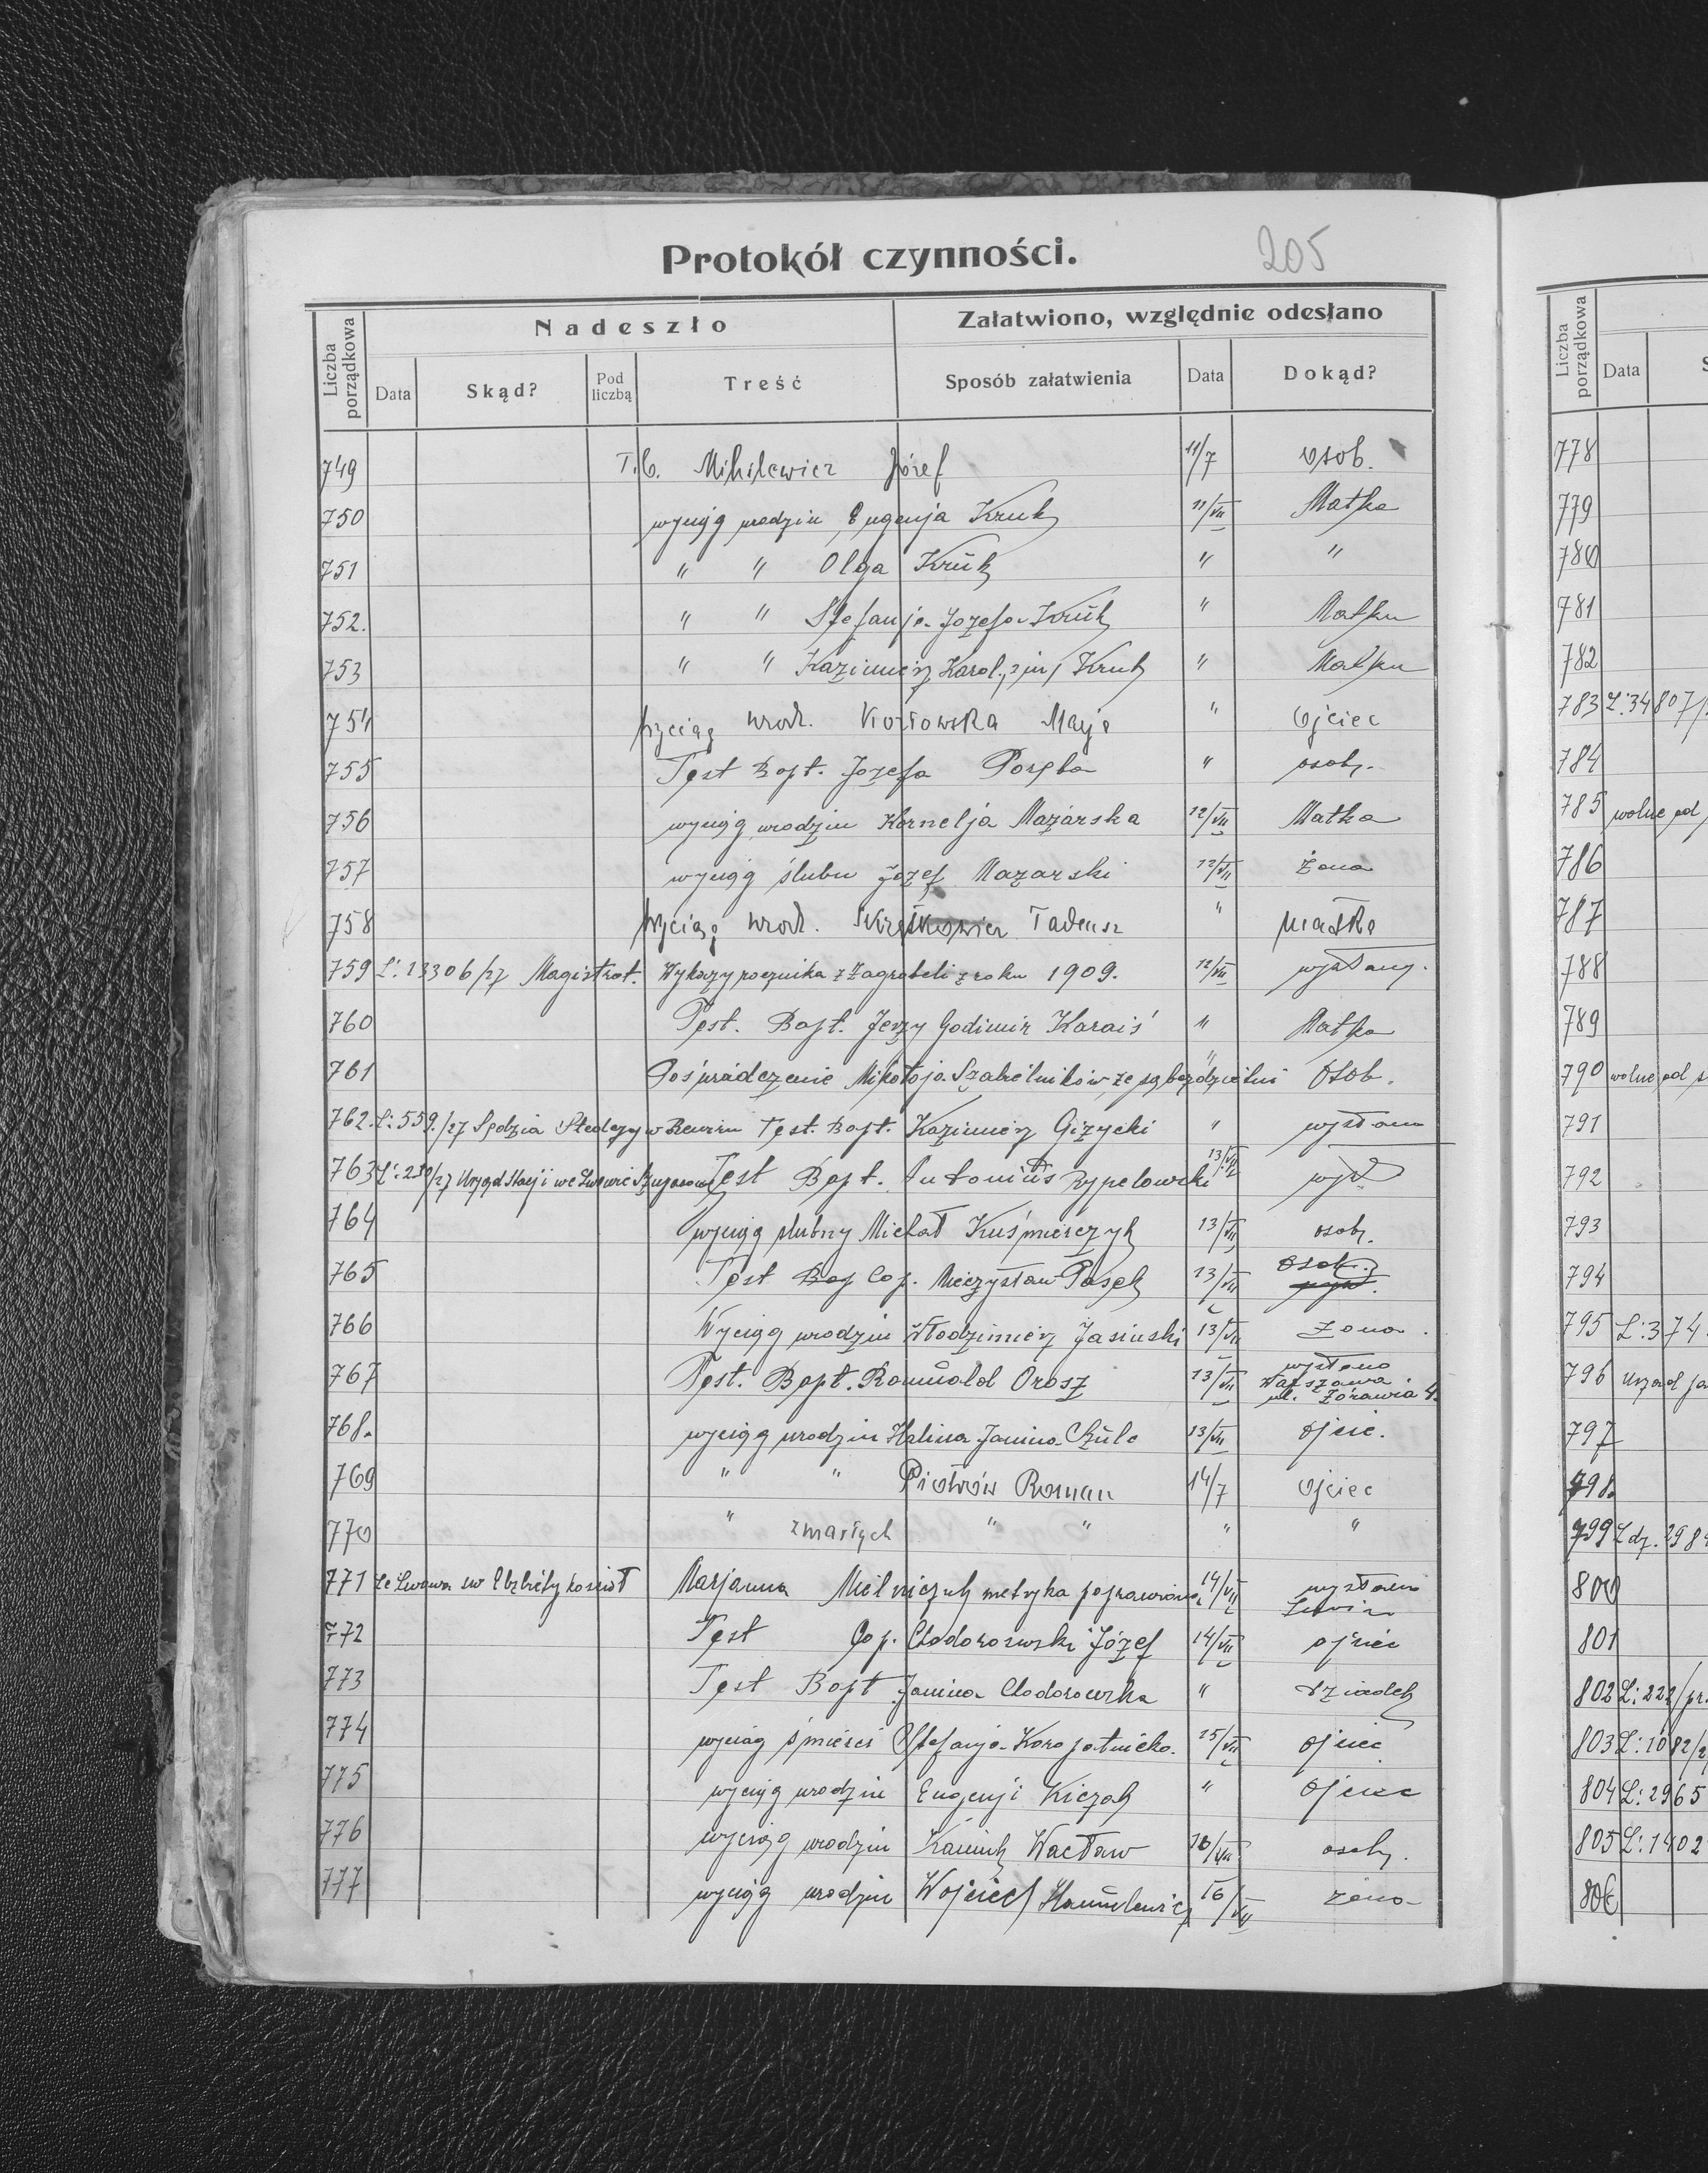 Protokół czynności. 205
Liczba porządkowa
Nadeszło
Załatwiono, względnie odesłano
Data Skąd? Pod liczbą Treść Sposób załatwienia Data Dokąd?
749 T.b. Mihilewicz Józef 11/7 osob.
750 wyciąg urodzin Eugenja Kruk 11/VII Matka
751 " " Olga Kruk " "
752. " " Stefanja Jozefa Kruk " Matka
753 " " Kazimierz Karol, 2 im, Kruk " Matka
754 wyciąg urodz. Kozłowska Marja " Ojciec
755 Test Bapt. Jozefa Poręba " osob.
756 wyciąg urodzin Kornelja Mazarska 12/VII Matka
757 wyciąg ślubu Józef Mazarski 12/VII żona
758 Wyciąg urodz. Tadeusz " Matka
759 L: 13306/27 Magistrat. Wykazy rocznika z Zagrobeli z roku 1909. 12/VII wysłany.
760 Test. Bapt. Jerzy Godimir Karaiś " Matka
761 Poświadczenie Mikołaja Szabelników że są bezdzietni " Osob.
762. L: 559./27 Sędzia Śledczy w Test. Bapt. Kazimierz Giżycki " wysłano
763 L: /27 Urząd Stacji we Lwowie Test Bapt. Antonius Rypelowski 13/VII wysł
764 wyciąg ślubny Michał Kuśmierczyk 13/VII osob.
765 Test Bap Cop. Mieczysław Pasek 13/VII Osob.
766 Wyciąg urodzin Włodzimierz Jasiński 13/VII Żona.
767 Test. Bapt. Romuald Orosz 13/VII wysłano
Warszawa
ul. Żórawia 4.
768. wyciąg urodzin Halina Janina Szulc 13/VII ojciec.
769 " " Piotrów Roman 14/7 Ojciec
770 " zmarłych " " " "
771 Ze Lwowa św Elżbiety kosciół Marjanna Mielniczuk metryka poprawiona 14/VII wysłano
Lwów
772 Test Cop. Chodorowski Józef 14/VII ojciec
773 Test Bapt Janina Chodorowska " dziadek
774 wyciąg śmierci Stefanja Koropatnicka. 15/VII ojciec
775 wyciąg urodzin Eugenji Kiczak " Ojciec
776 wyciąg urodzin Wacław 16/VII osob.
777 wyciąg urodzin Wojciech 16/VII żona
Liczba porządkowa
Data
778
779
780
781
782
783 L: 34807/
784
785 wolne od
786
787
788
789
790 wolne od
791
792
793
794
795 L: 374
796 Urząd
797
798.
799 Ldz. 298
800
801
802 L: 222/pr.
803 L: 1082/2
804 L: 2965
805 L: 1402
806